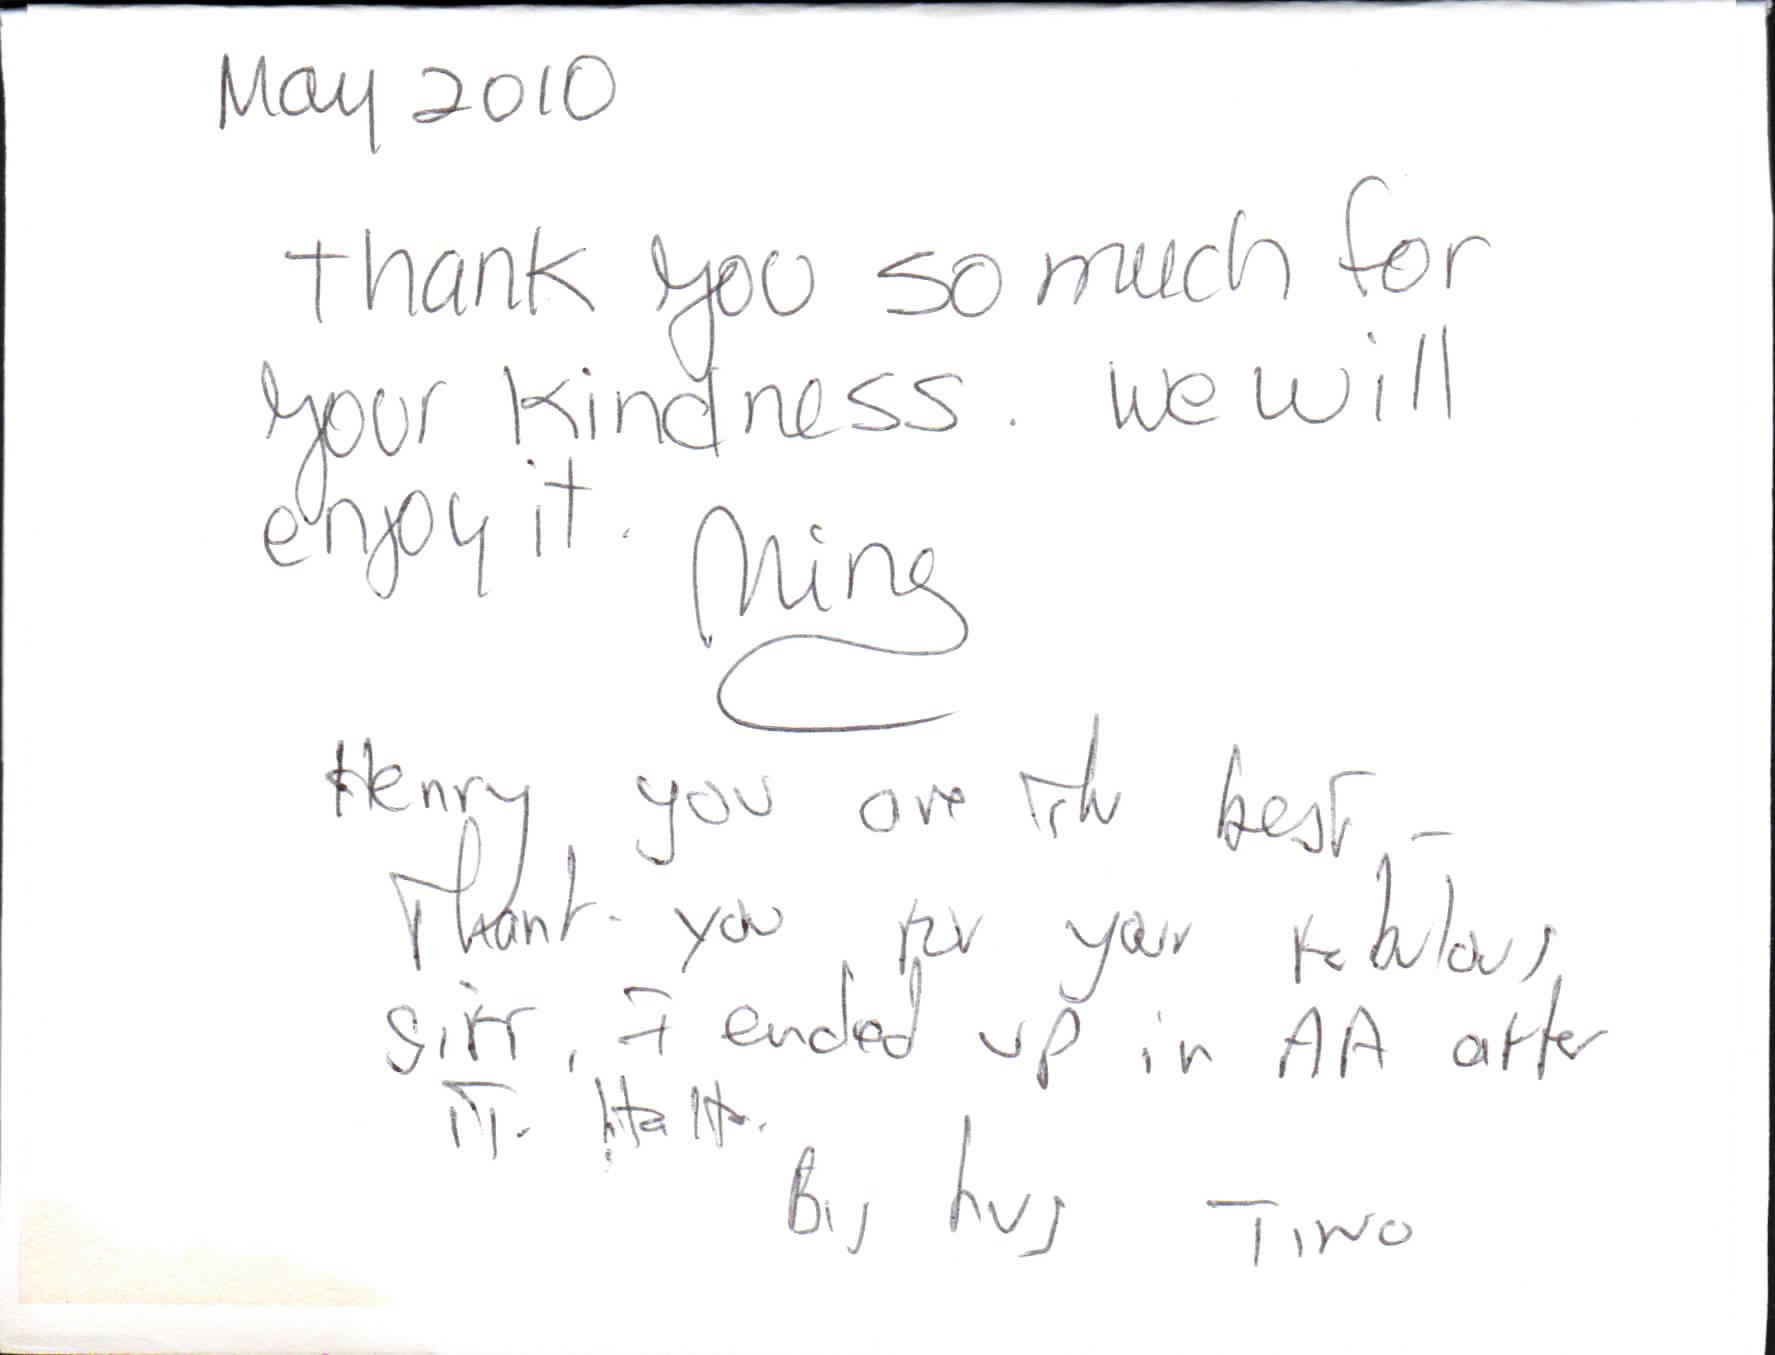 May 2010
Thank you so much for
your kindness. We will
enjoy it. Ming
Henry you are the best -
Thank you for your fabulous
gift, I ended up in AA after
it. Ha Ha.
Big hug Tino